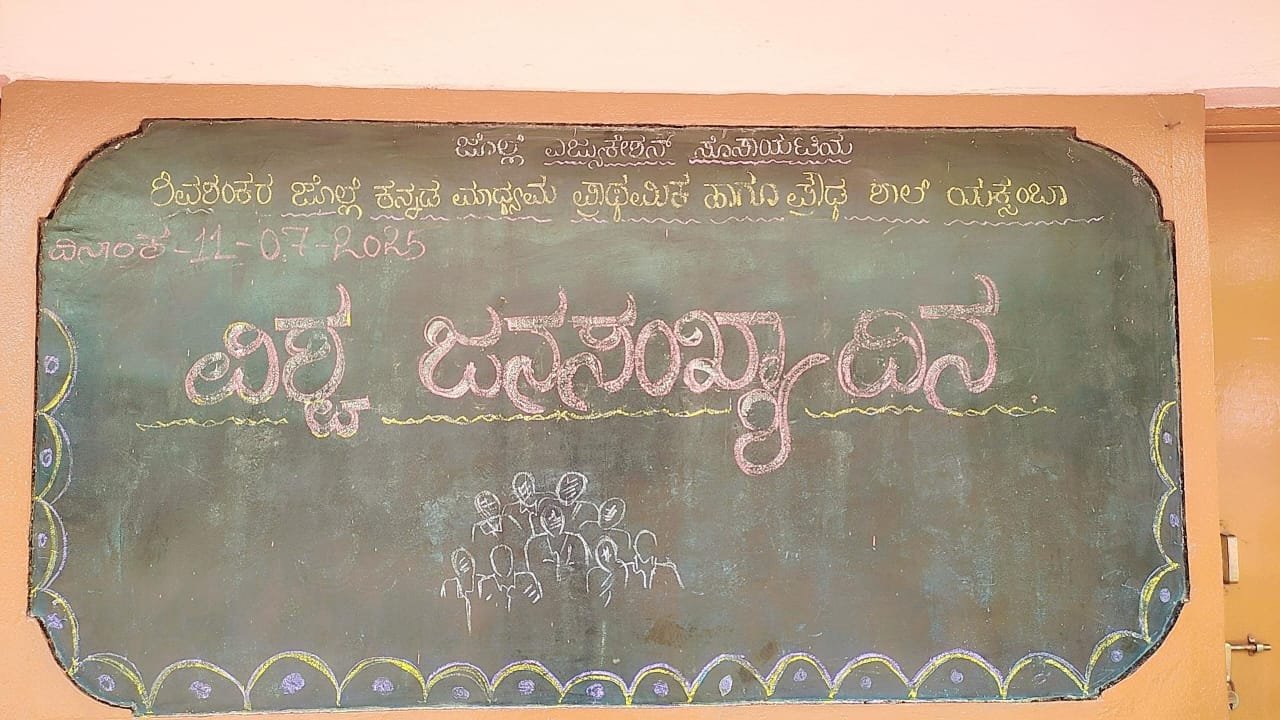 ಜೊಲ್ಲೆ ಎಜ್ಯುಕೇಶನ್ ಸೊಸಾಯಟಿಯ
ಶಿವಶಂಕರ ಜೊಲ್ಲೆ ಕನ್ನಡ ಮಾಧ್ಯಮ ಪ್ರಾಥಮಿಕ ಹಾಗೂ ಪ್ರೌಢ ಶಾಲೆ ಯಕ್ಸಂಬಾ
ದಿನಾಂಕ-11-07-2025
ವಿಶ್ವ ಜನಸಂಖ್ಯಾ ದಿನ